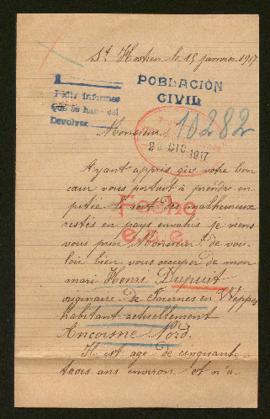 St Hostien le 15 janvier 1917
POBLACIÓN
CIVIL
Pedir informes
Devolver
10282
Monsieur
26 DIC 1917
Ayant appris que votre bon
cœur vous portait à prendre en
pitié le sort des malheureux
restés en pays envahis je viens
vous prier Monsieur de vou-
loir bien vous occuper de mon
Fiche
mari Henri Dupuit
originaire de Fournes en Weppes
habitant actuellement
Ancoisne Nord.
Il est age de cinquante
trois ans environ et n'a